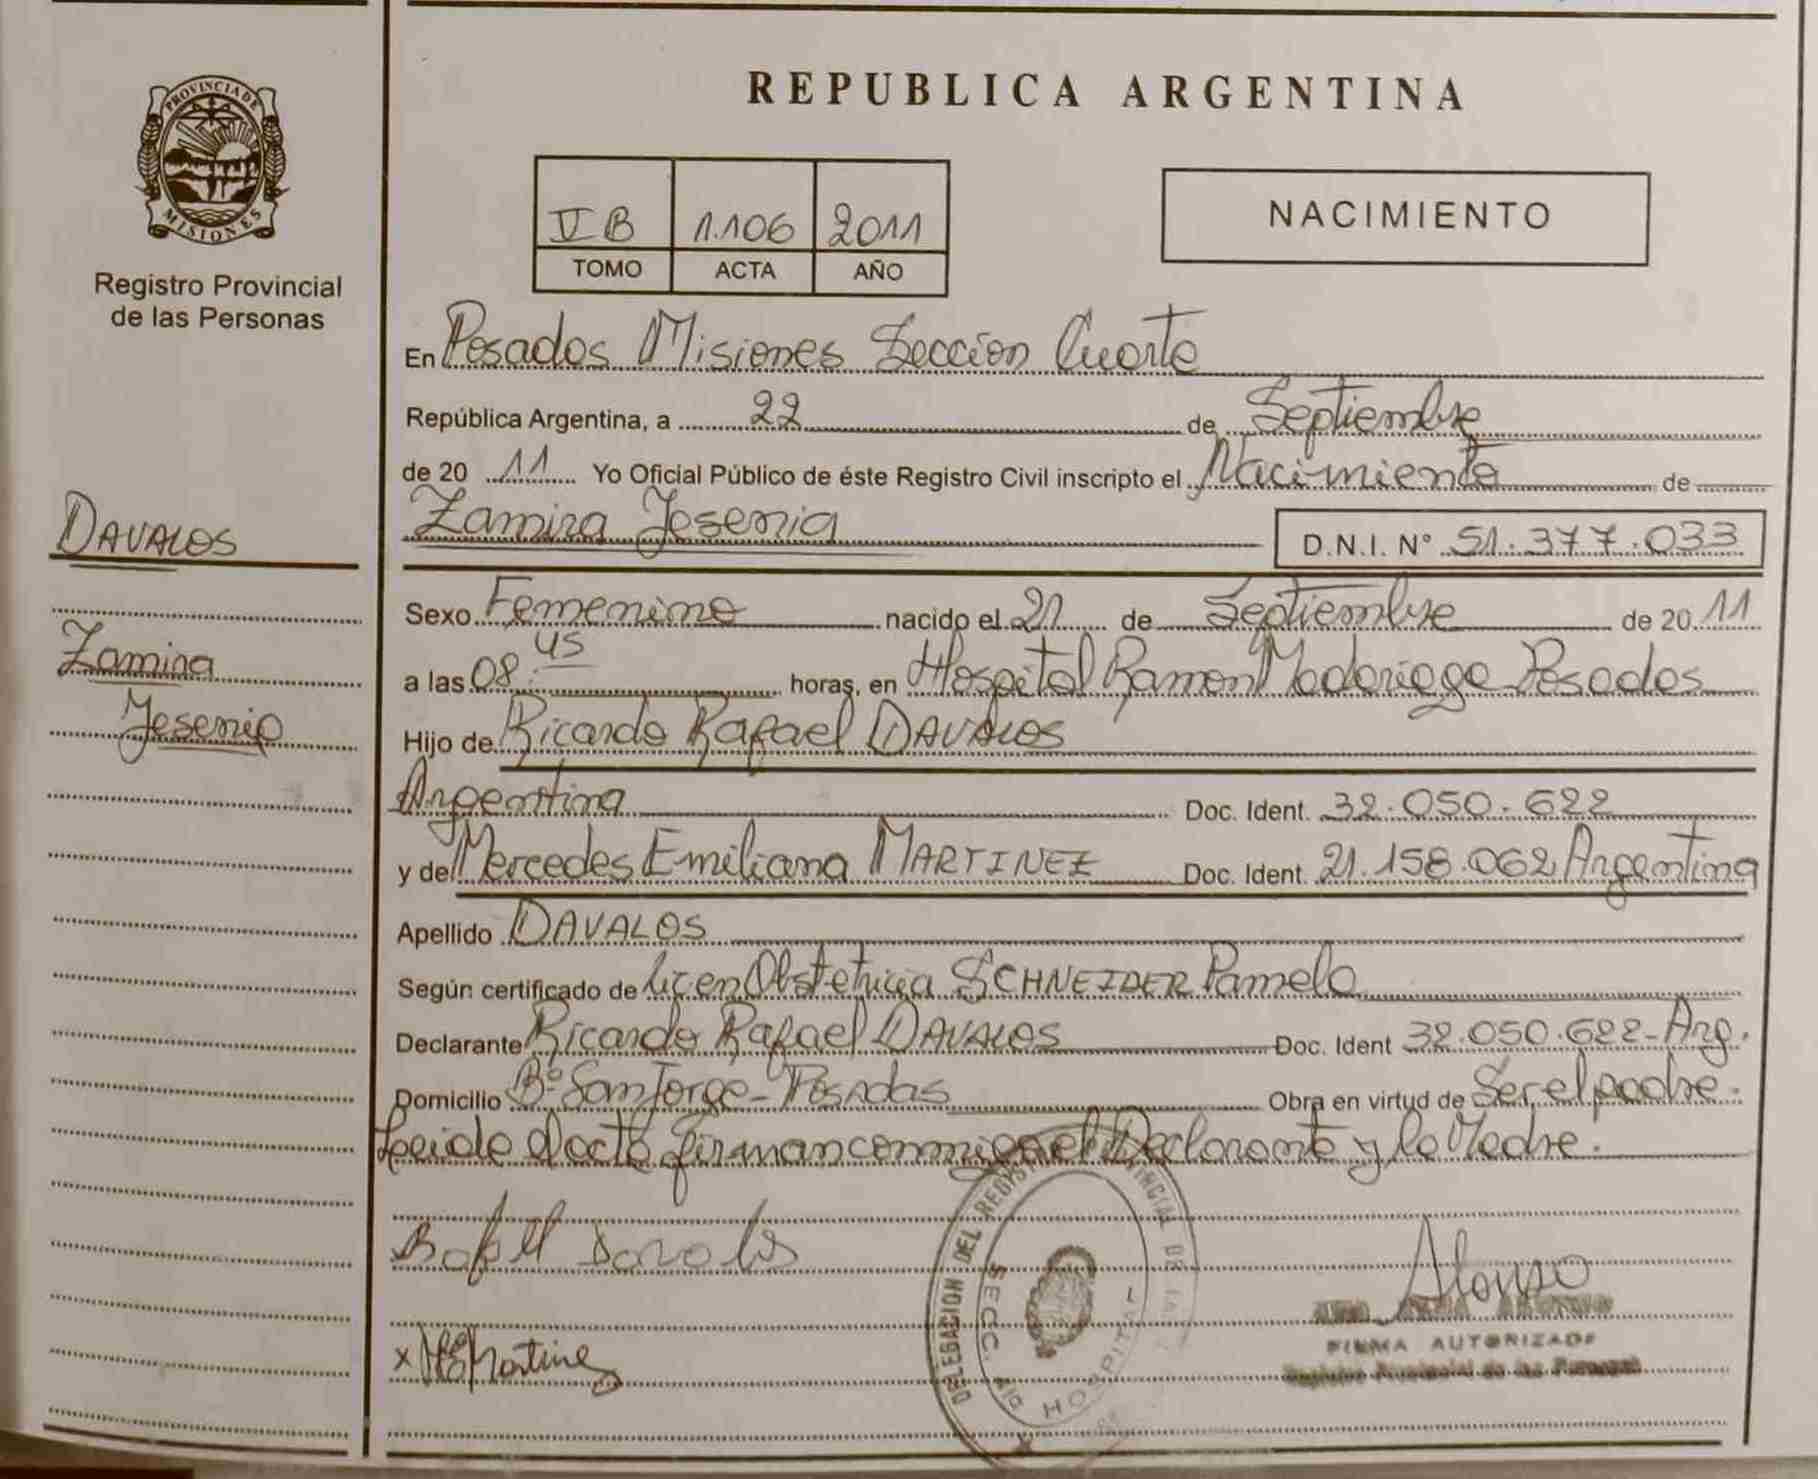 PROVINCIA DE
MISIONES
Registro Provincial
de las Personas
DAVALOS
Zamira
Jesenia
REPUBLICA ARGENTINA
V B 1.106 2011
TOMO ACTA AÑO
NACIMIENTO
En Posadas Misiones Seccion Cuarta
República Argentina, a 22 de Septiembre
de 20 11 Yo Oficial Público de éste Registro Civil inscripto el Nacimiento de
Zamira Jesenia
D.N.I. N° 51.377.033
Sexo Femenino nacido el 21 de Septiembre de 20 11
a las 08:45 horas, en Hospital Ramon Madariaga Posadas
Hijo de Ricardo Rafael DAVALOS
Argentina Doc. Ident. 32.050.622
y de Mercedes Emiliana MARTINEZ Doc. Ident. 21.158.062 Argentina
Apellido DAVALOS
Según certificado de Licen Obstetricia SCHNEIDER Pamela
Declarante Ricardo Rafael DAVALOS Doc. Ident 32.050.622-Arg.
Domicilio B° San Jorge - Posadas Obra en virtud de Ser el padre.
Leida el acta firman conmigo el Declarante y la Madre.
DELEGACION DEL
SECC.
HOSPITAL
Alonso
FIRMA AUTORIZADA
Registro Provincial de las Personas